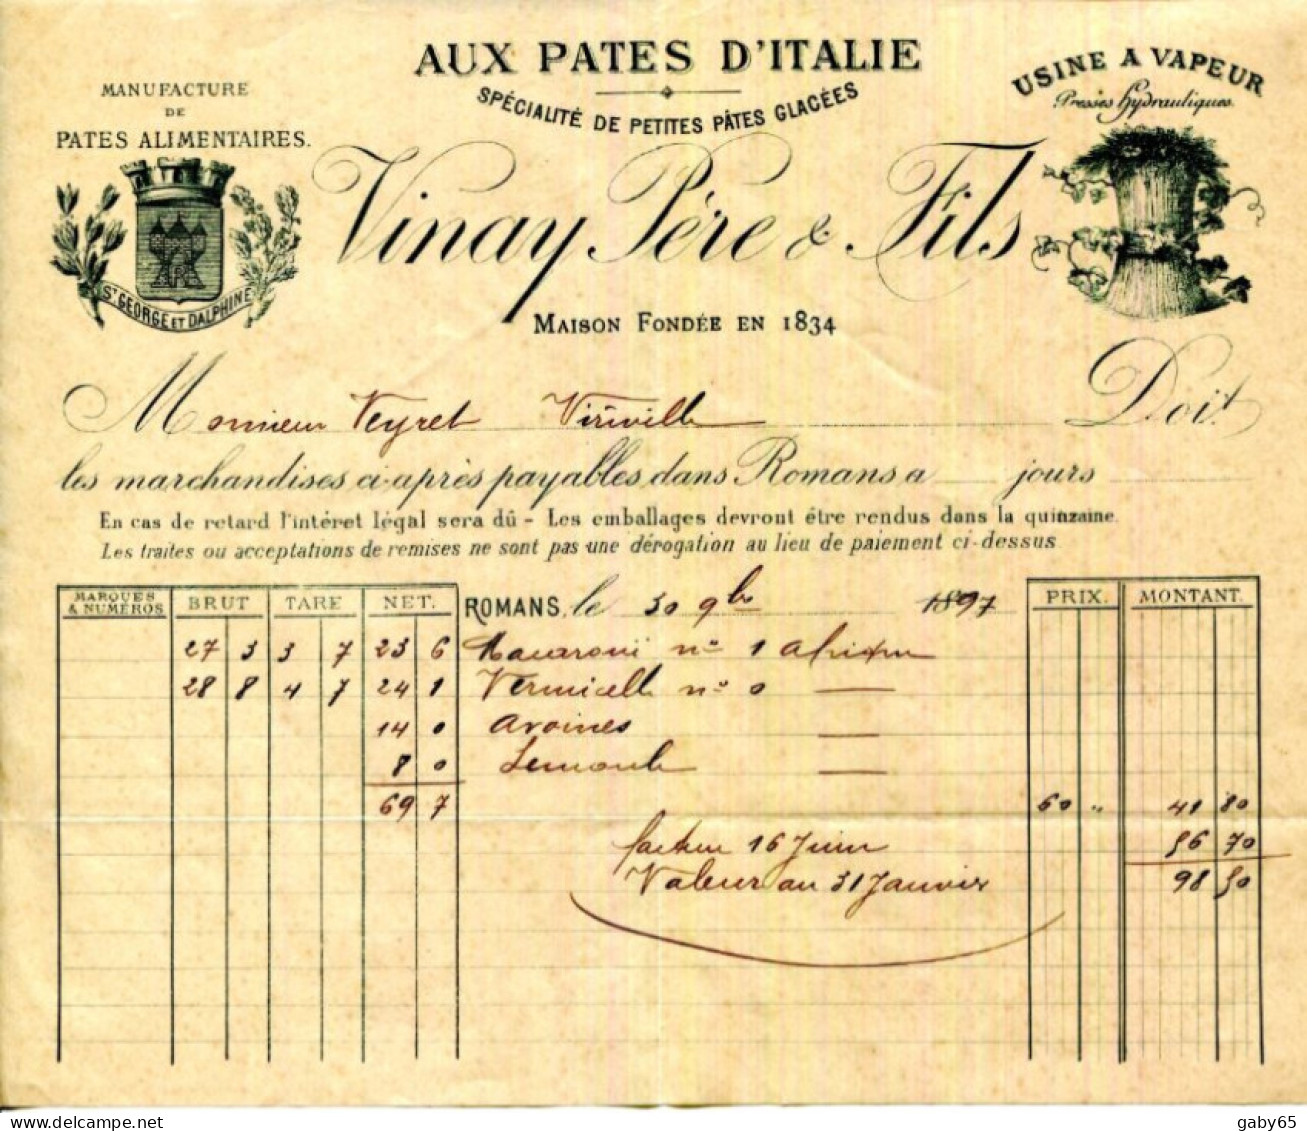 AUX PATES D'ITALIE
SPÉCIALITÉ DE PETITES PÂTES GLACÉES
MANUFACTURE
DE
PATES ALIMENTAIRES.
USINE A VAPEUR
Presses Hydrauliques
Vinay Père & Fils
ST GEORGE ET DALPHINE
MAISON FONDÉE EN 1834
Monsieur Veyret Viriville Doit
les marchandises ci-après payables dans Romans a jours
En cas de retard l'intéret légal sera dû - Les emballages devront être rendus dans la quinzaine.
Les traites ou acceptations de remises ne sont pas une dérogation au lieu de paiement ci-dessus
MARQUES & NUMÉROS BRUT TARE NET. ROMANS, le 30 9bre 1897 PRIX. MONTANT.
27 3 3 7 23 6 Macaroni no 1
28 8 4 7 24 1 Vermicelle no 0 —
14 0 avoines —
8 0 —
69 7 60 " 41 80
facture 16 Juin 56 70
Valeur au 31 Janvier 98 50
www.delcampe.net
gaby65